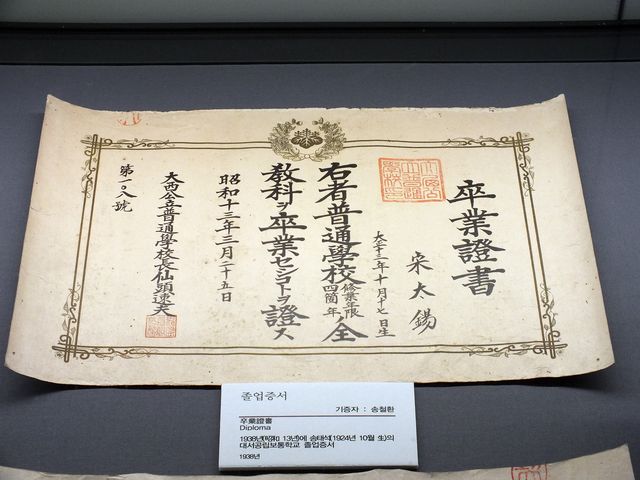 卒業證書
宋太錫
大正十三年十月十七日生
右者普通學校修業年限四箇年ノ全
教科ヲ卒業セシコトヲ證ス
昭和十三年三月二十五日
大西公立普通學校長仙頭速夫
第一〇八號
졸업증서
기증자 : 송철환
卒業證書
Diploma
1938년(昭和 13년)에 송태석(1924년 10월 生)의
대서공립보통학교 졸업증서
1938년